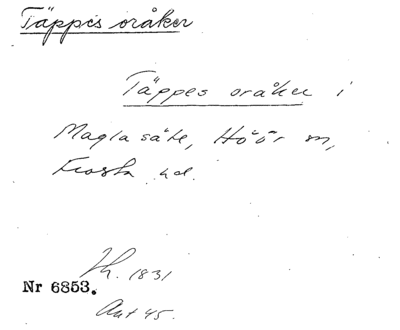 Täppes oråker
Täppes oråker i
Maglasäte, Höör sn,
Frosta hd.
Lh. 1831
Nr 6853.
Ant 45.